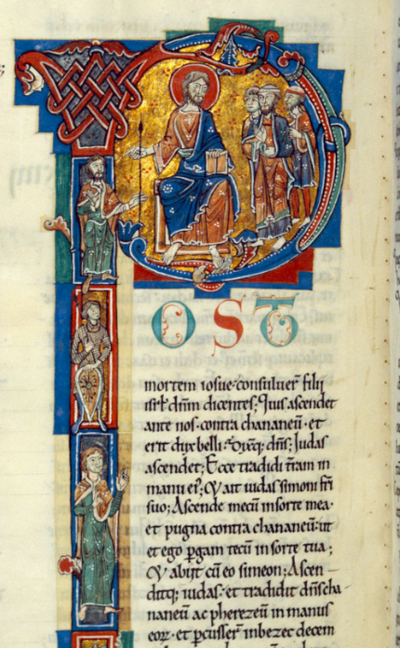 POST
mortem iosue·consuluerͭ filii
isrł dñm dicentes; Quis ascendet
ante nos·contra chananeū·et
erit dux belli; Dixitq; dñs; Iudas
ascendet; Ecce tradidi t̄ram in
manu ei9; Et ait iudas simoni fr̄i
suo; Ascende mecū in sorte mea·
et pugna contra chananeū·ut
et ego p̄gam tecū in sorte tua;
Et abiit cū eo simeon; Ascen-
ditq; iudas·et tradidit dñs cha
naneū ac pherezeū in manus
eorꝝ·et percusser̄ in bezec decem